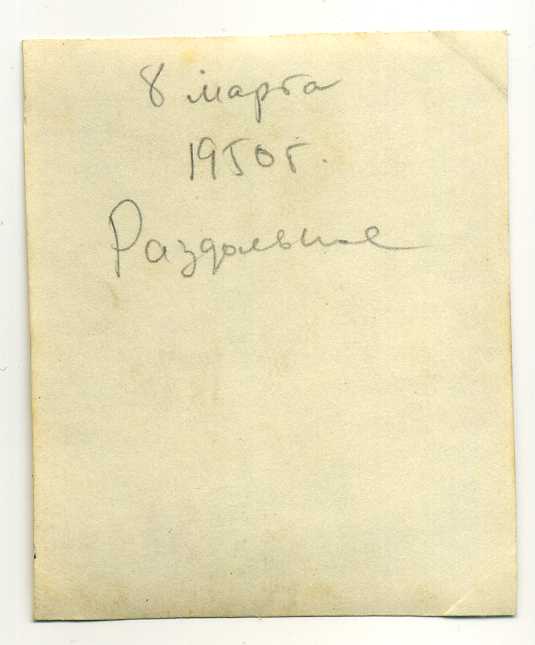 8 марта
1950 г.
Раздольное